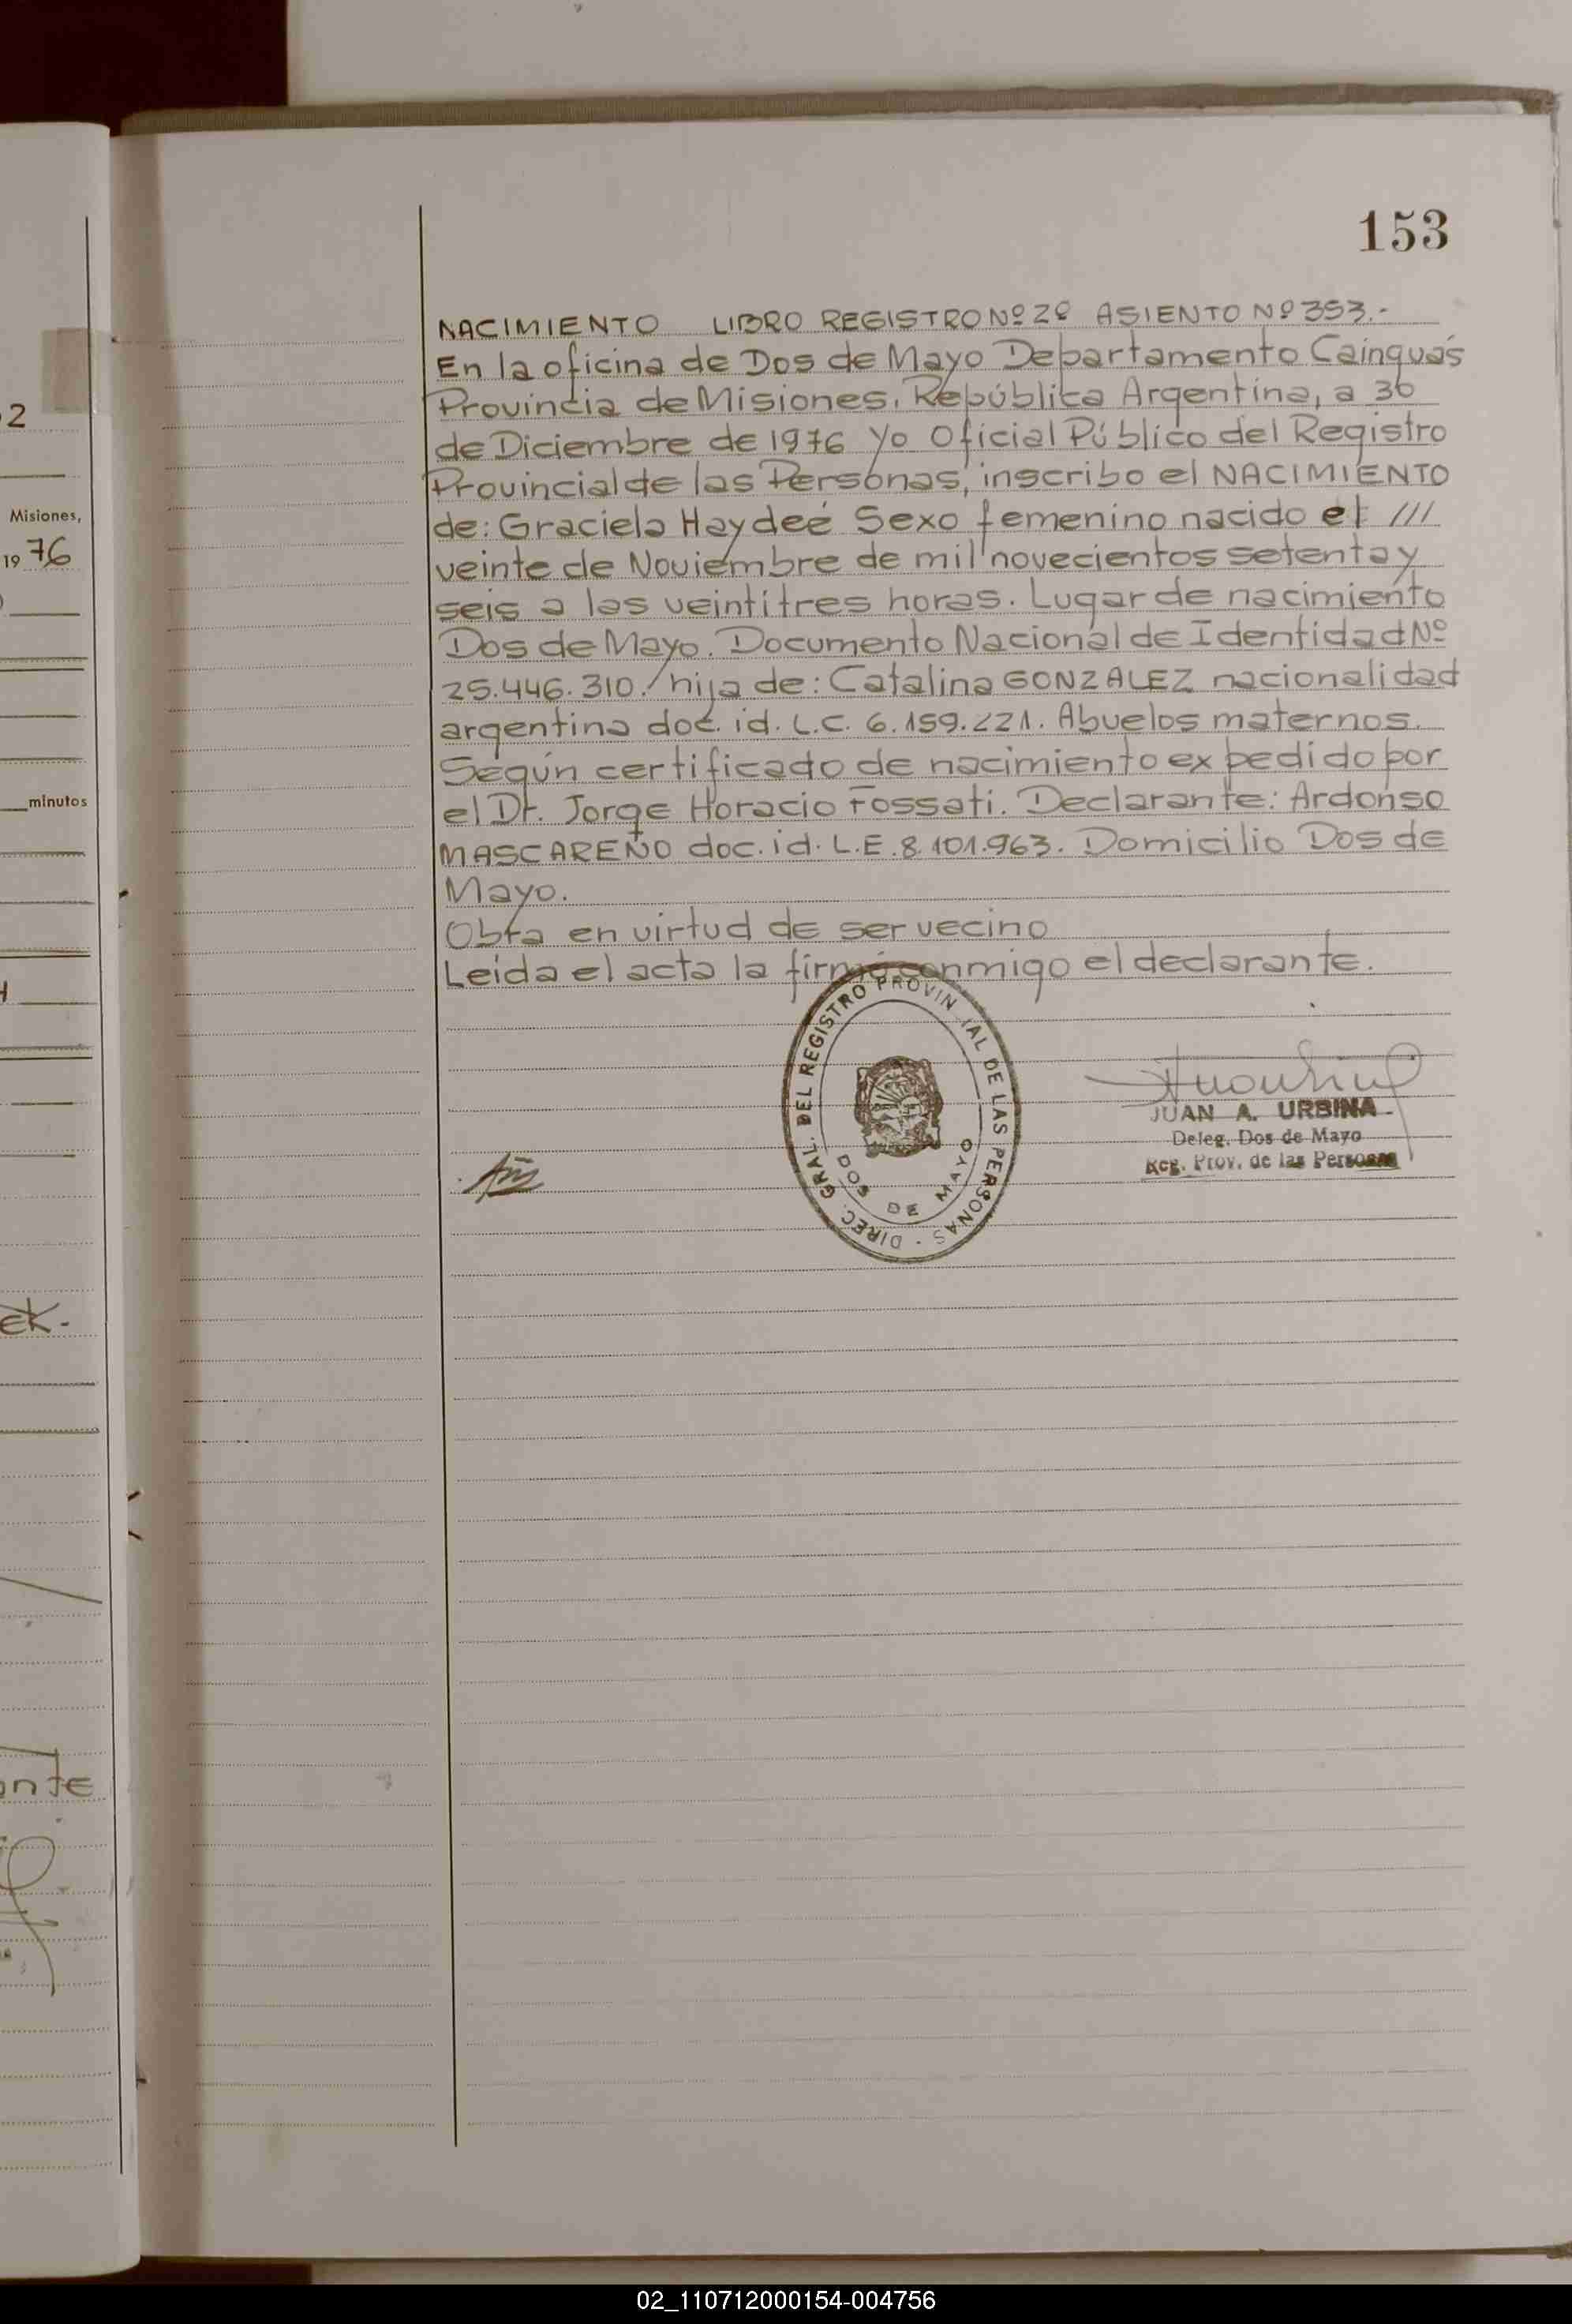 2
Misiones,
19 76
minutos
ek.
nte
153
NACIMIENTO LIBRO REGISTRO Nº 2º ASIENTO Nº 353.-
En la oficina de Dos de Mayo Departamento Cainguás
Provincia de Misiones, República Argentina, a 30
de Diciembre de 1976 Yo Oficial Público del Registro
Provincial de las Personas, inscribo el NACIMIENTO
de: Graciela Haydeé Sexo femenino nacido el ///
veinte de Noviembre de mil novecientos setenta y
seis a las veintitres horas. Lugar de nacimiento
Dos de Mayo. Documento Nacional de Identidad Nº
25.446.310. hija de: Catalina GONZALEZ nacionalidad
argentina doc. id. L.C. 6.159.221. Abuelos maternos.
Según certificado de nacimiento expedido por
el Dr. Jorge Horacio Fossati. Declarante: Ardonso
MASCAREÑO doc. id. L.E. 8.101.963. Domicilio Dos de
Mayo.
Obra en virtud de ser vecino
Leida el acta la firmó conmigo el declarante.
DIREC. GRAL. DEL REGISTRO PROVIN IAL DE LAS PERSONAS
DOS DE MAYO
JUAN A. URBINA
Deleg. Dos de Mayo
Reg. Prov. de las Personas
02_110712000154-004756